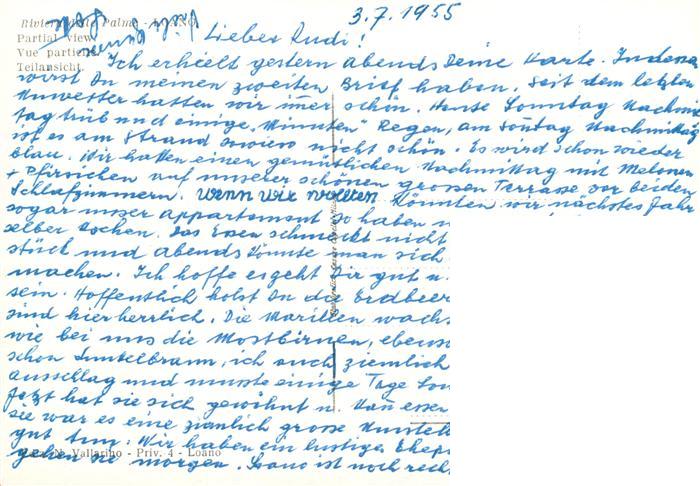 3.7.1955
Riviera Palme - LOANO
Partial view
Vue partielle
Teilansicht.
Lieber Rudi!
Ich erhielt gestern abends Deine Karte. Indessen
wirst Du meinen zweiten Brief haben. Seit dem letzten
Unwetter hatten wir imer schön. Heute Sonntag Nachmit
tag trüb und einige "Minuten" Regen, am Sontag Nachmittag
ist es am Strand sowieso nicht schön. Es wird schon wieder
blau. Wir hatten einen gemütlichen Nachmittag mit Melonen
+ Pfirsichen auf unserer schönen grossen Terrasse vor beiden
Schlafzimmern. Wenn wir wollten könnten wir nächstes Jahr
sogar unser Appartement so haben
selber kochen. Das Essen schmeckt nicht
stück und abends könnte man sich
machen. Ich hoffe es geht Dir gut u.
sein. Hoffentlich holst Du die Erdbeer
sind hier herrlich. Die Marillen wachs
wie bei uns die Mostbirnen, ebenso
schon dunkelbraun, ich auch ziemlich
Ausschlag und musste einige Tage
Jetzt hat sie sich gewöhnt u. essen
sie war es eine ziemlich grosse Umstell
gut tun. Wir haben ein lustiges Ehep
gehen sie morgen. Loano ist noch rech
N. Vallarino - Priv. 4 - Loano